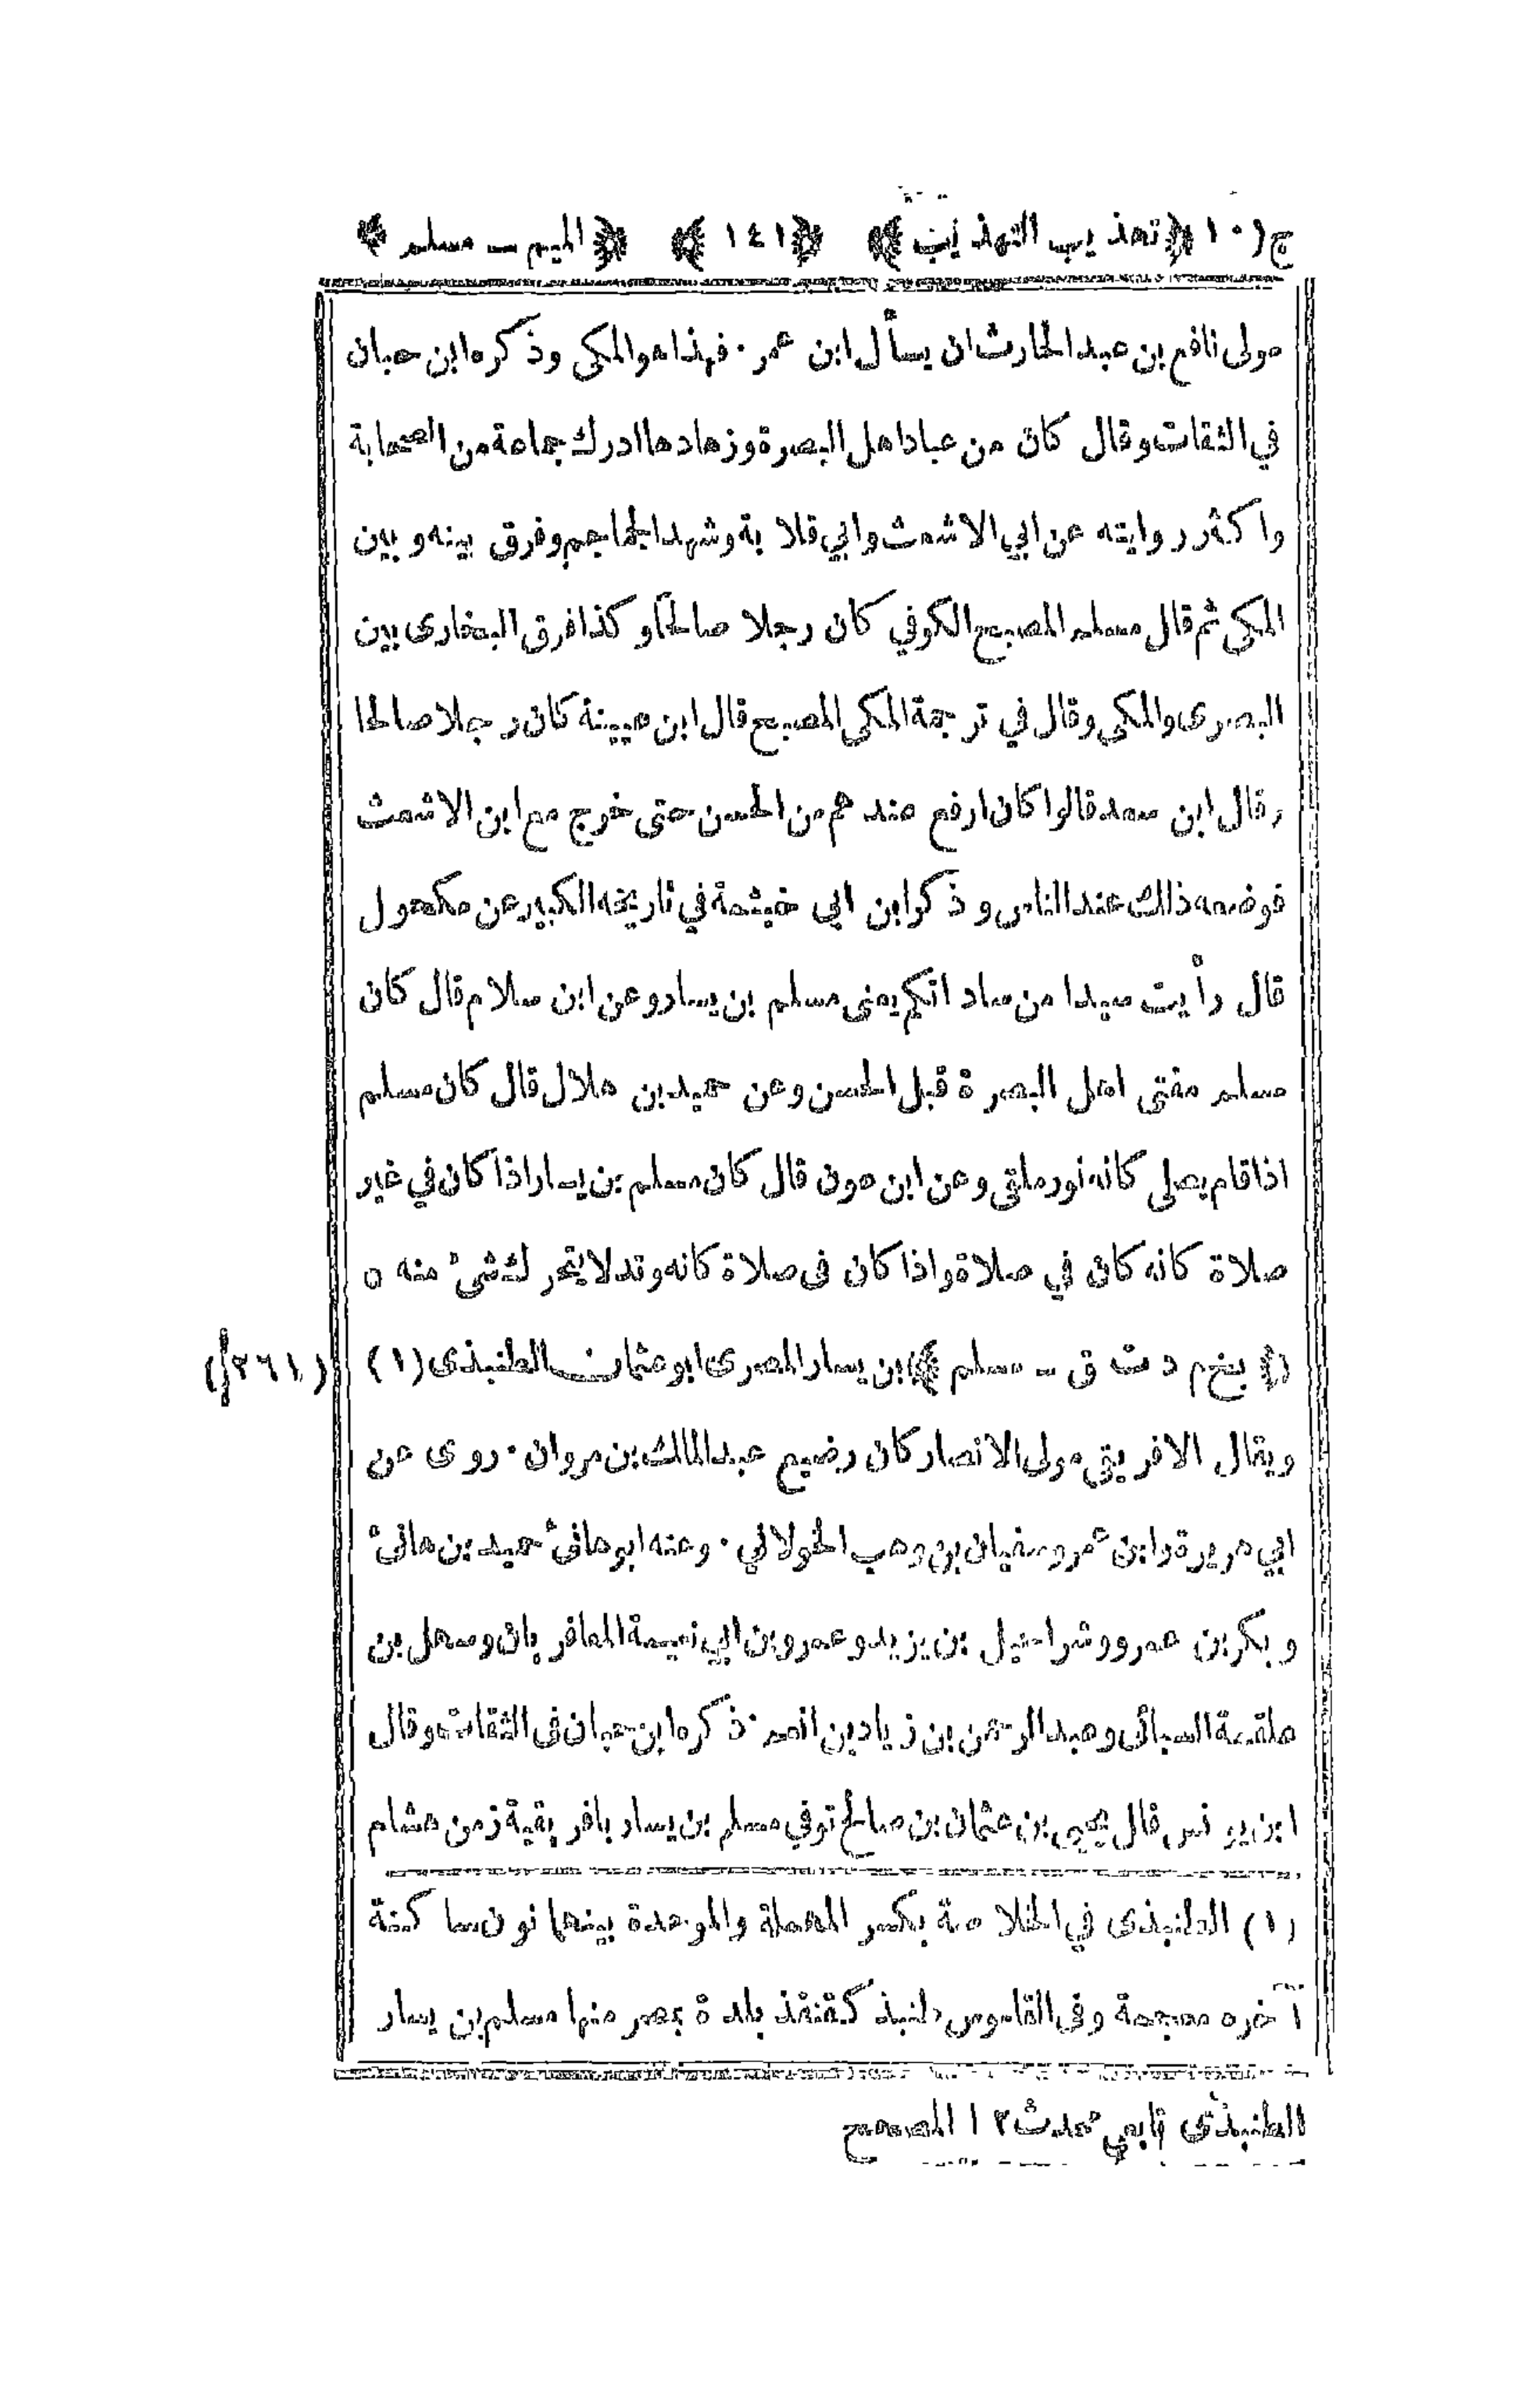 ج (١٠) ﴿تهذيب التهذيب﴾ ﴿١٤١﴾ ﴿الميم - مسلم﴾
مولى نافع بن عبد الحارث ان يسأل ابن عمر · فهذا هو المكي وذكره ابن حبان
في الثقات وقال كان من عباد اهل البصرة وزهادها ادرك جماعة من الصحابة
واكثر روايته عن ابي الاشعث وابي قلابة وشهد الجماجم وفرق بينه وبين
المكي ثم قال مسلم المصبح الكوفي كان رجلا صالحا وكذا فرق البخارى بين
البصرى والمكي وقال في ترجمة المكي المصبح قال ابن عيينة كان رجلا صالحا
وقال ابن سعد قالوا كان ارفع عندهم من الحسن حتى خرج مع ابن الاشعث
فوضعه ذلك عند الناس وذكر ابن ابي خيثمة في تاريخه الكبير عن مكحول
قال رأيت سيدا من ساداتكم يعنى مسلم بن يسار وعن ابن سلام قال كان
مسلم مفتى اهل البصرة قبل الحسن وعن حميد بن هلال قال كان مسلم
اذا قام يصلى كانه نور ملقى وعن ابن عون قال كان مسلم بن يسار اذا كان في غير
صلاة كانه كان في صلاة واذا كان فى صلاة كانه وتد لا يتحرك شئ منه ٥
﴿ بخ م د ت ق - مسلم ﴾ بن يسار المصرى ابو عثمان الطنبذى (١)
(٢٦١)
ويقال الافريقي مولى الانصار كان رضيع عبد الملك بن مروان · روى عن
ابي هريرة وابن عمر وسفيان بن وهب الخولاني · وعنه ابو هانئ حميد بن هانئ
وبكر بن عمرو وشراحيل بن يزيد وعمرو بن ابي نعيمة المعافريان وسهل بن
علقمة السبائى وعبد الرحمن بن زياد بن انعم · ذكره ابن حبان فى الثقات وقال
ابن يونس قال يحيى بن عثمان بن صالح توفي مسلم بن يسار بافريقية زمن هشام
(١) الطنبذى في الخلاصة بكسر المهملة والموحدة بينهما نون ساكنة
آخره معجمة وفى القاموس طنبذ كقنفذ بلدة بمصر منها مسلم بن يسار
الطنبذى تابعي محدث ١٢ المصحح